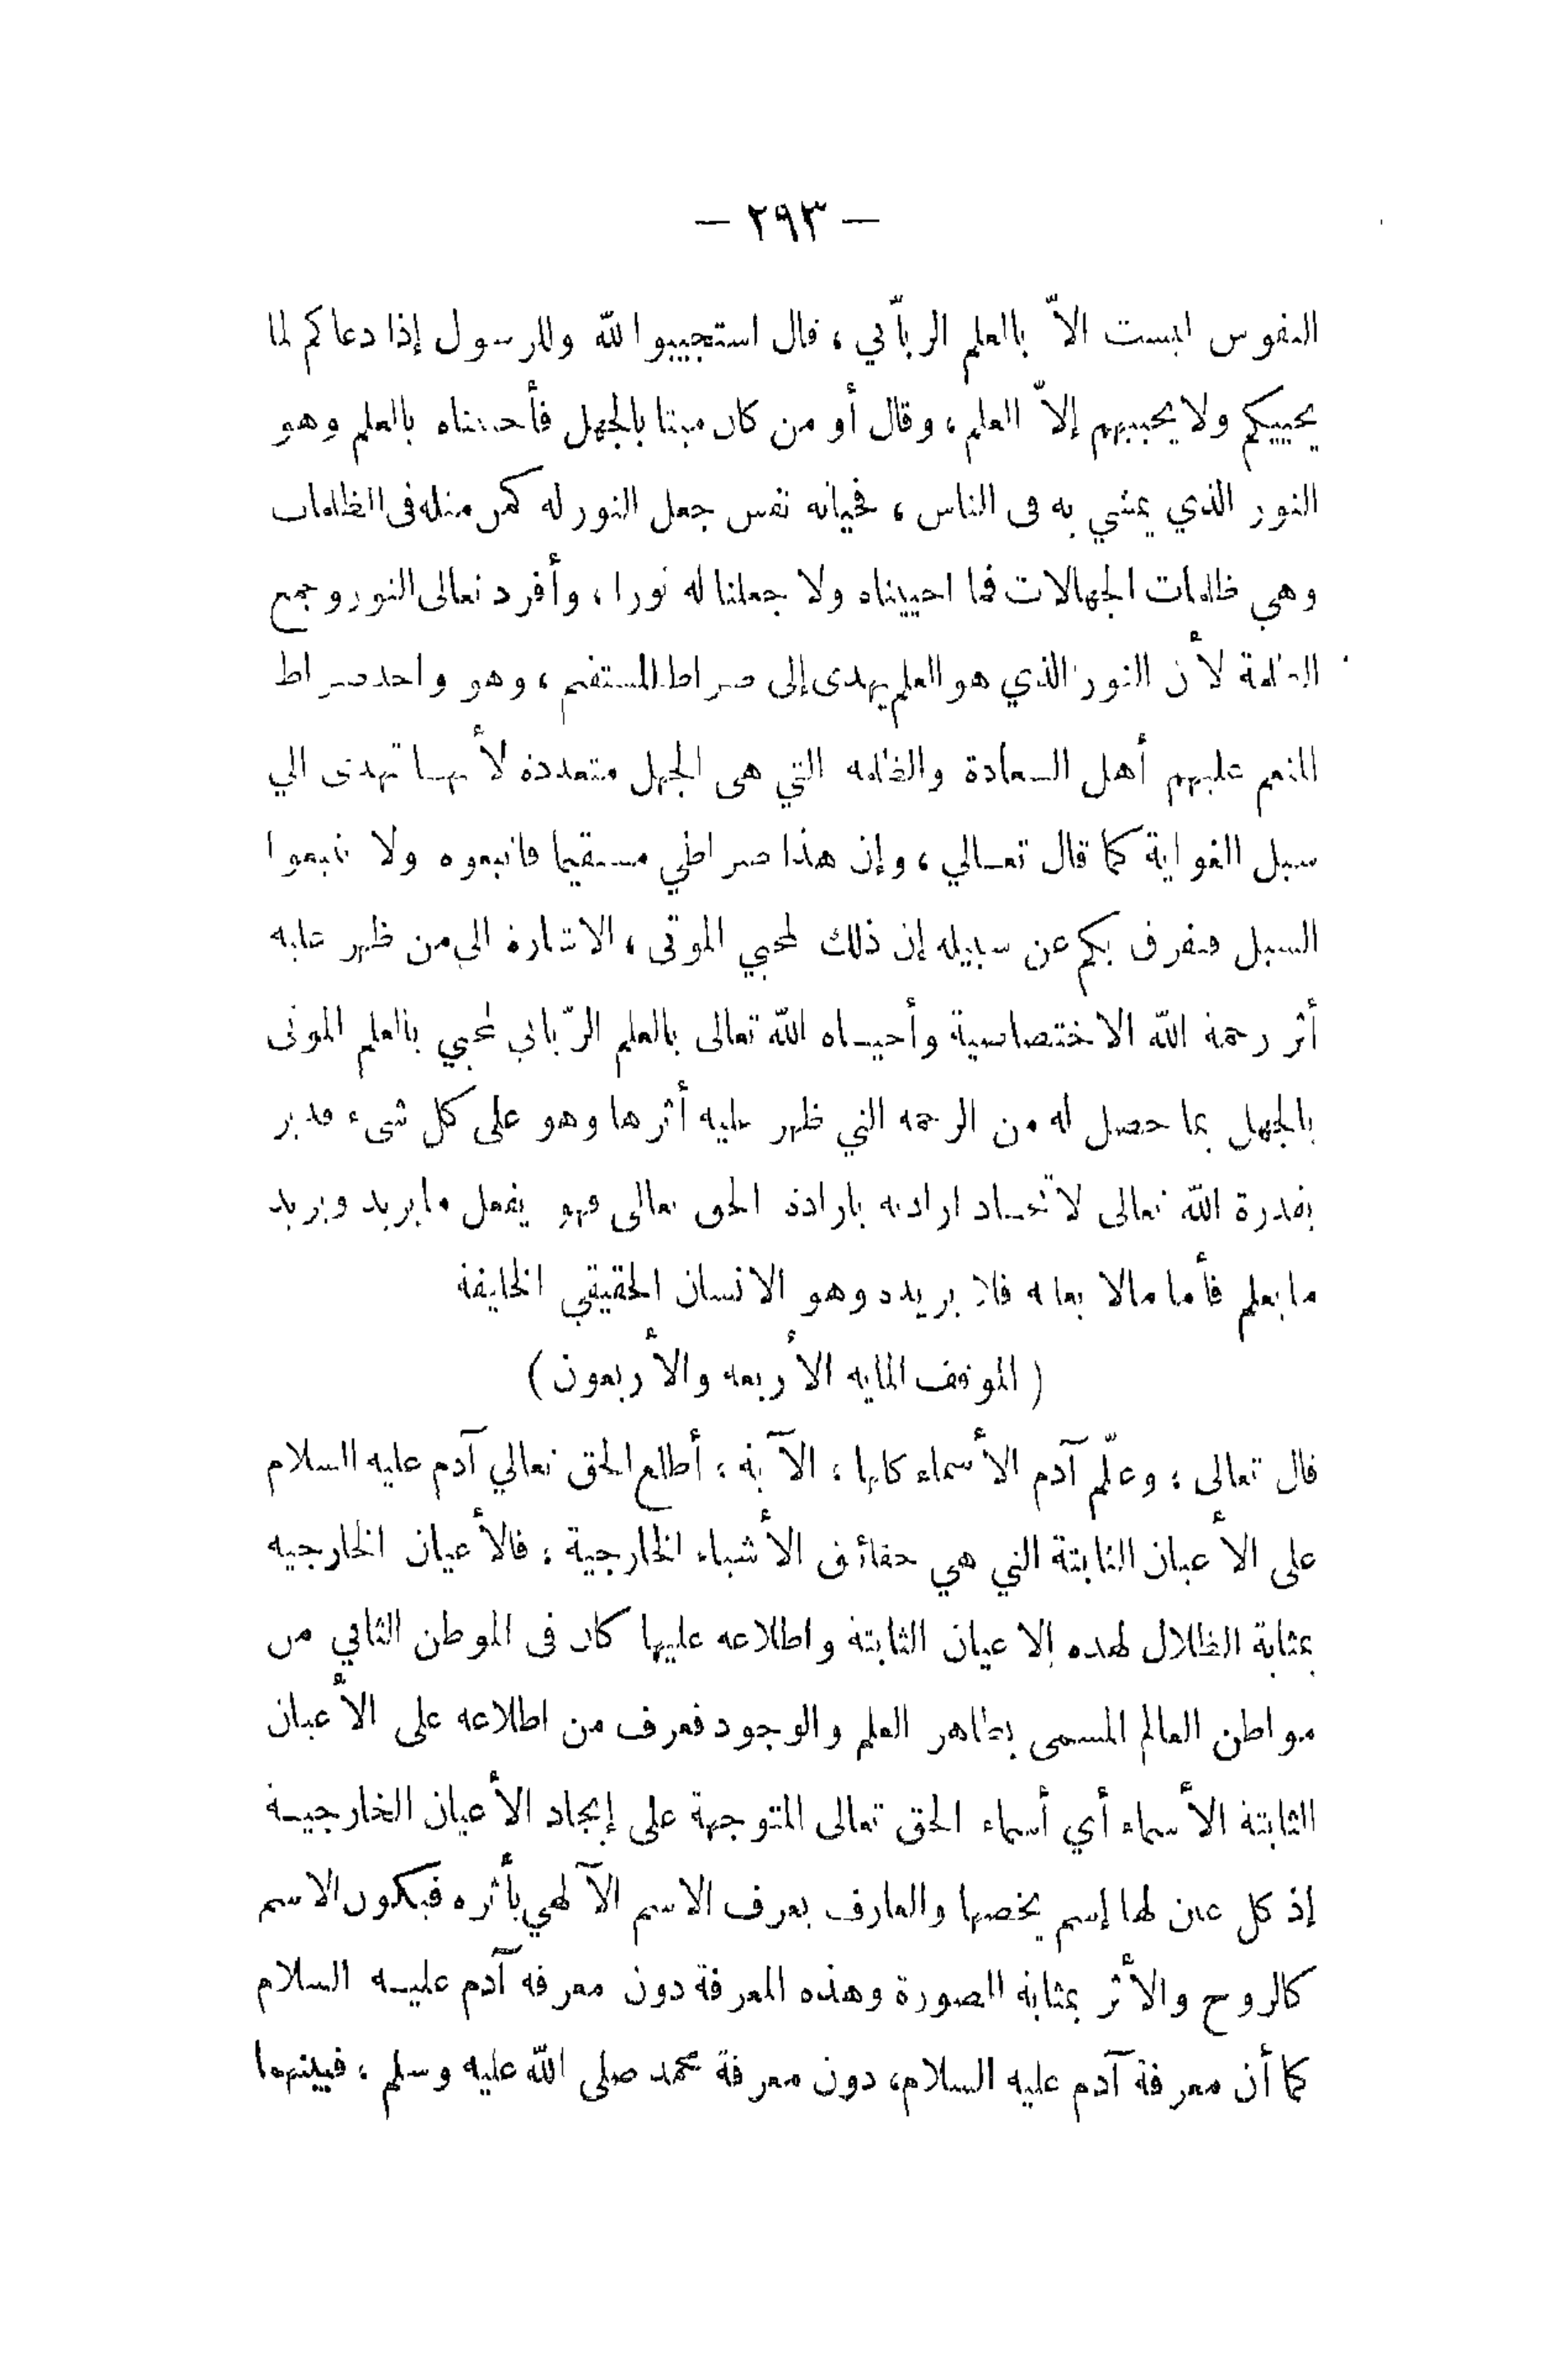 — ٢٩٣ —
النفوس ليست الاّ بالعلم الربّاني ، قال استجيبوا لله وللرسول إذا دعاكم لما
يحييكم ولا يحييهم إلاّ العلم ، وقال أو من كان ميتا بالجهل فأحييناه بالعلم وهو
النور الذي يمشي به في الناس ، فحياته نفس جعل النور له كمن مثله في الظلمات
وهي ظلمات الجهالات فما احييناه ولا جعلنا له نورا ، وأفرد تعالى النور وجمع
الظلمة لأن النور الذي هو العلم يهدى إلى صراط المستقيم ، وهو واحد صراط
المنعم عليهم أهل السعادة والظلمة التي هى الجهل متعددة لأنها تهدى الي
سبل الغواية كما قال تعالي ، وإن هذا صراطي مستقيما فاتبعوه ولا تتبعوا
السبل فتفرق بكم عن سبيله إن ذلك لمحيي الموتى ، الاشارة الي من ظهر عليه
أثر رحمة الله الاختصاصية وأحياه الله تعالى بالعلم الرّباني لمحيي بالعلم الموتى
بالجهل بما حصل له من الرحمة التي ظهر عليه أثرها وهو على كل شىء قدير
بقدرة الله تعالى لاتحاد ارادته بارادة الحق تعالى فهو يفعل ما يريد ويريد
ما يعلم فأما مالا يعلمه فلا يريده وهو الانسان الحقيقي الخليفة
( الموقف المايه الأربعه والأربعون )
قال تعالى : وعلّم آدم الأسماء كلها : الآية : أطلع الحق تعالي آدم عليه السلام
على الأعيان الثابتة التي هي حقائق الأشياء الخارجية : فالأعيان الخارجيه
بمثابة الظلال لهذه الاعيان الثابتة واطلاعه عليها كان فى الموطن الثاني من
مواطن العالم المسمى بظاهر العلم والوجود فعرف من اطلاعه على الأعيان
الثابتة الأسماء أي أسماء الحق تعالى المتوجهة على إيجاد الأعيان الخارجية
إذ كل عين لها إسم يخصها والعارف يعرف الاسم الآلهي بأثره فيكون الاسم
كالروح والأثر بمثابة الصورة وهذه المعرفة دون معرفة آدم عليه السلام
كما أن معرفة آدم عليه السلام، دون معرفة محمد صلى الله عليه وسلم ، فبينهما